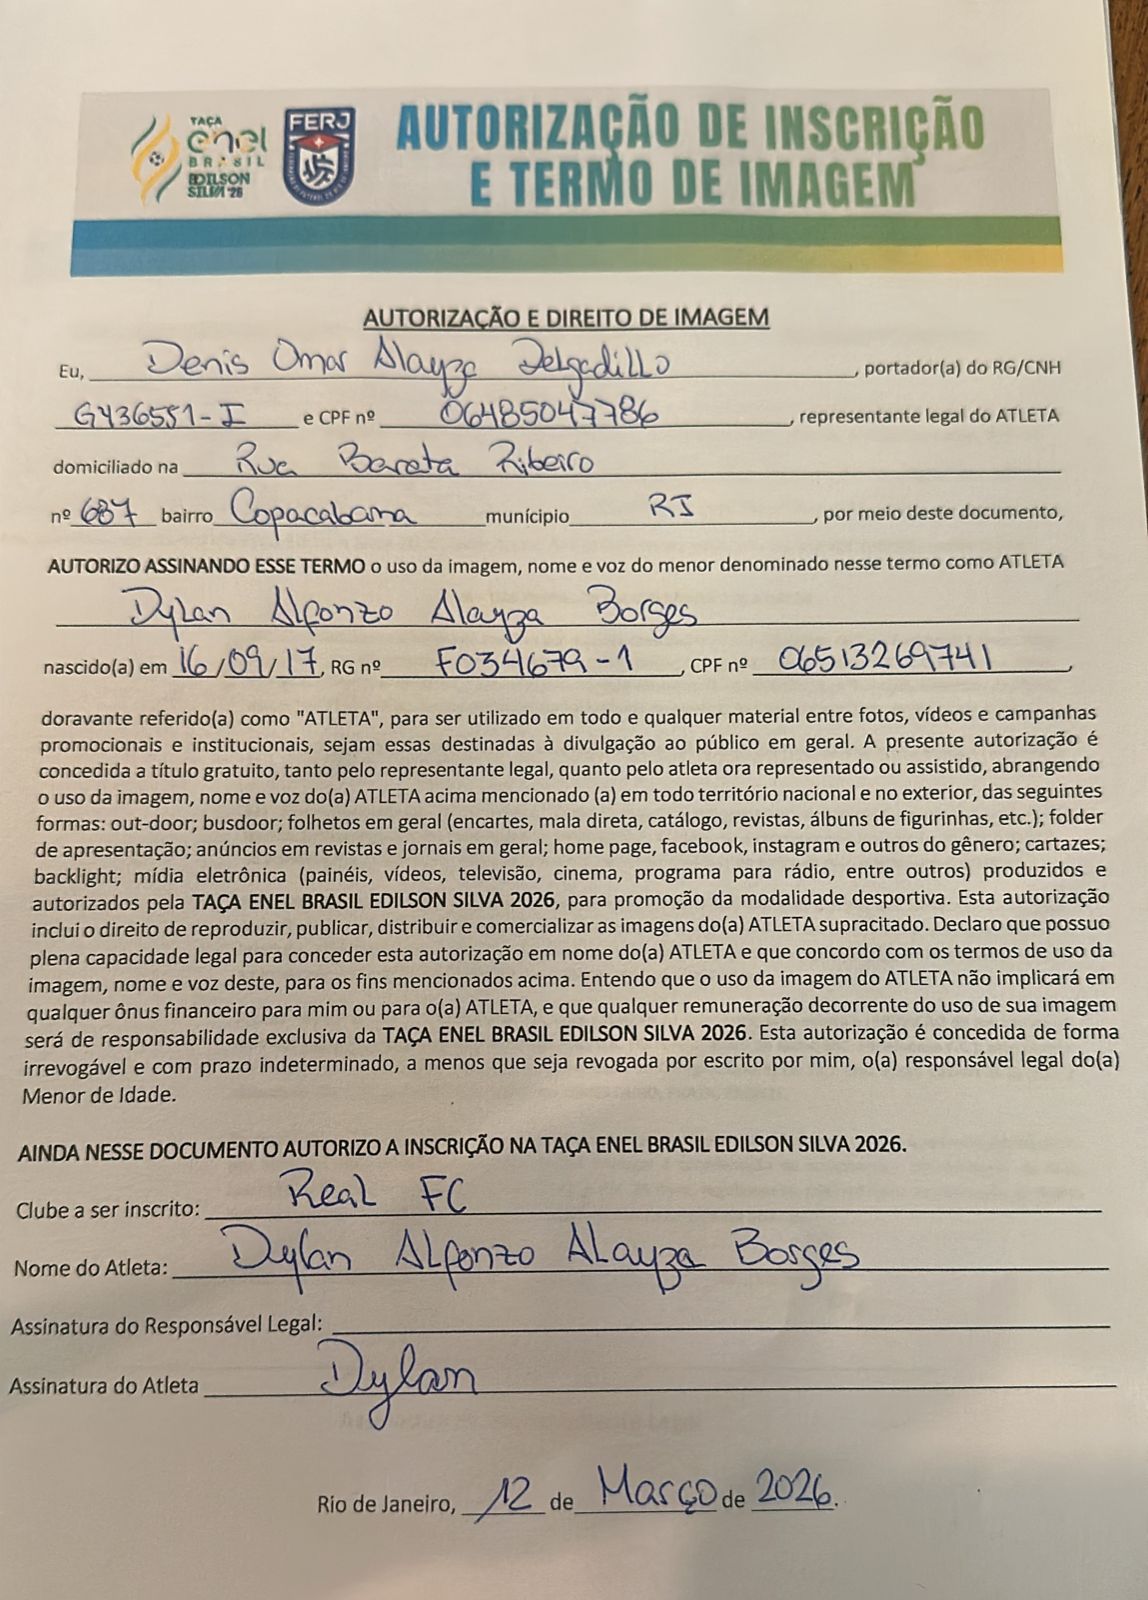 TAÇA
enel
BRASIL
EDILSON
SILVA '26
FERJ
AUTORIZAÇÃO DE INSCRIÇÃO
E TERMO DE IMAGEM
AUTORIZAÇÃO E DIREITO DE IMAGEM
Eu, Denis Omar Alayza Delgadillo, portador(a) do RG/CNH
G436551-I e CPF nº 06485047786, representante legal do ATLETA
domiciliado na Rua Barata Ribeiro
nº 687 bairro Copacabana munícipio RJ, por meio deste documento,
AUTORIZO ASSINANDO ESSE TERMO o uso da imagem, nome e voz do menor denominado nesse termo como ATLETA
Dylan Alfonzo Alayza Borges
nascido(a) em 16/09/17, RG nº F034679-1, CPF nº 06513269741,
doravante referido(a) como "ATLETA", para ser utilizado em todo e qualquer material entre fotos, vídeos e campanhas
promocionais e institucionais, sejam essas destinadas à divulgação ao público em geral. A presente autorização é
concedida a título gratuito, tanto pelo representante legal, quanto pelo atleta ora representado ou assistido, abrangendo
o uso da imagem, nome e voz do(a) ATLETA acima mencionado (a) em todo território nacional e no exterior, das seguintes
formas: out-door; busdoor; folhetos em geral (encartes, mala direta, catálogo, revistas, álbuns de figurinhas, etc.); folder
de apresentação; anúncios em revistas e jornais em geral; home page, facebook, instagram e outros do gênero; cartazes;
backlight; mídia eletrônica (painéis, vídeos, televisão, cinema, programa para rádio, entre outros) produzidos e
autorizados pela TAÇA ENEL BRASIL EDILSON SILVA 2026, para promoção da modalidade desportiva. Esta autorização
inclui o direito de reproduzir, publicar, distribuir e comercializar as imagens do(a) ATLETA supracitado. Declaro que possuo
plena capacidade legal para conceder esta autorização em nome do(a) ATLETA e que concordo com os termos de uso da
imagem, nome e voz deste, para os fins mencionados acima. Entendo que o uso da imagem do ATLETA não implicará em
qualquer ônus financeiro para mim ou para o(a) ATLETA, e que qualquer remuneração decorrente do uso de sua imagem
será de responsabilidade exclusiva da TAÇA ENEL BRASIL EDILSON SILVA 2026. Esta autorização é concedida de forma
irrevogável e com prazo indeterminado, a menos que seja revogada por escrito por mim, o(a) responsável legal do(a)
Menor de Idade.
AINDA NESSE DOCUMENTO AUTORIZO A INSCRIÇÃO NA TAÇA ENEL BRASIL EDILSON SILVA 2026.
Clube a ser inscrito: Real FC
Nome do Atleta: Dylan Alfonzo Alayza Borges
Assinatura do Responsável Legal:
Assinatura do Atleta Dylan
Rio de Janeiro, 12 de Março de 2026.